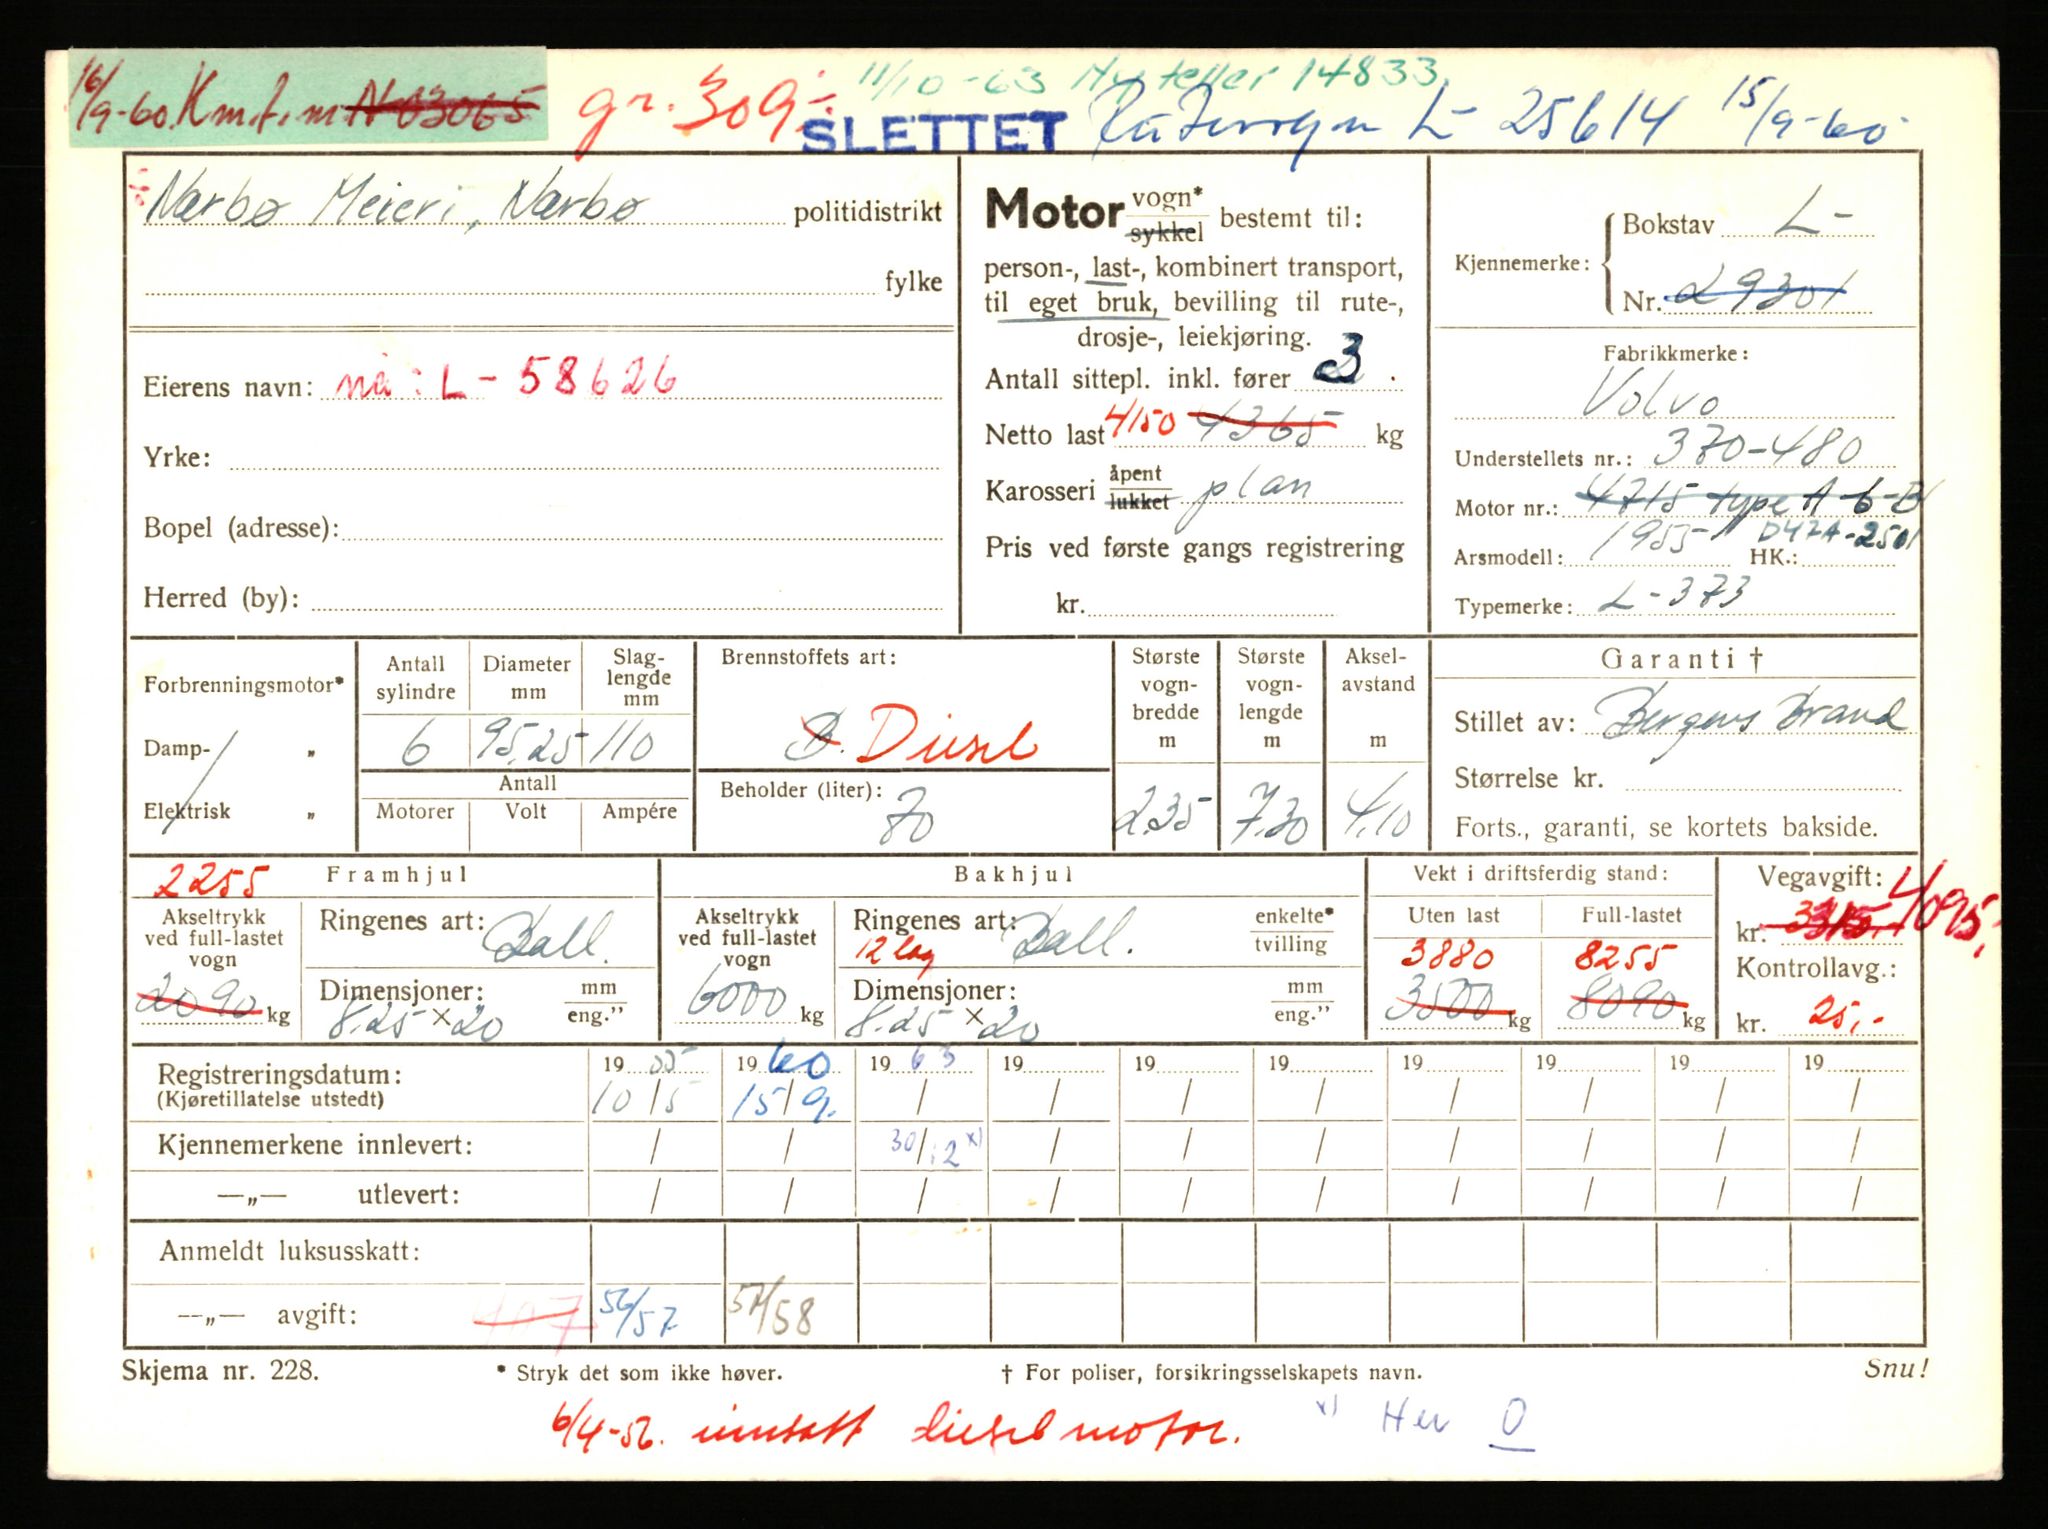 16/9-60. Km.f.m N 03065 gr. 309,-
11/10-63 Ny teller 14833.
SLETTET L- 25614 15/9-60
Nærbø Meieri, Nærbø politidistrikt
fylke
Eierens navn: nå: L- 58626
Yrke:
Bopel (adresse):
Herred (by):
Motor vogn* / sykkel bestemt til:
person-, last-, kombinert transport,
til eget bruk, bevilling til rute-,
drosje-, leiekjøring.
Antall sittepl. inkl. fører 3
Netto last 4150 4365 kg
Karosseri åpent / lukket plan
Pris ved første gangs registrering
kr.
Kjennemerke: Bokstav L-
Nr. 29301
Fabrikkmerke:
Volvo
Understellets nr.: 370-480
Motor nr.: 4715 type A-6-B
D47A-2501
Arsmodell: 1955 HK.:
Typemerke: L-373
Forbrenningsmotor*
Damp- „
Elektrisk „
Antall sylindre 6
Diameter mm 95,25
Slag-lengde mm 110
Antall
Motorer Volt Ampére
Brennstoffets art:
B. Diesel
Beholder (liter):
70
Største vogn-bredde m 2,35
Største vogn-lengde m 7,30
Aksel-avstand m 4,10
Garanti †
Stillet av: Bergens Brand
Størrelse kr.
Forts., garanti, se kortets bakside.
2255 Framhjul
Akseltrykk ved full-lastet vogn
2090 kg
Ringenes art: Ball.
Dimensjoner: mm / eng.”
8.25 × 20
Bakhjul
Akseltrykk ved full-lastet vogn
6000 kg
Ringenes art: Ball. enkelte* / tvilling
12 lag
Dimensjoner: mm / eng.”
8.25 × 20
Vekt i driftsferdig stand:
Uten last Full-lastet
3880 8255
3500 kg 8090 kg
Vegavgift: 4095,-
kr. 3315,-
Kontrollavg.:
kr. 25,-
Registreringsdatum: 19 55 19 60 19 63 19 19 19 19 19 19 19
(Kjøretillatelse utstedt) 10/5 15/9. / / / / / / / /
Kjennemerkene innlevert: / / 30/12 x) / / / / / / /
—„— utlevert: / / / / / / / / / /
Anmeldt luksusskatt:
—„— avgift: 407 56/57 57/58
Skjema nr. 228. * Stryk det som ikke høver. † For poliser, forsikringsselskapets navn. Snu!
6/4-56. innsatt dieselmotor. x) Her O